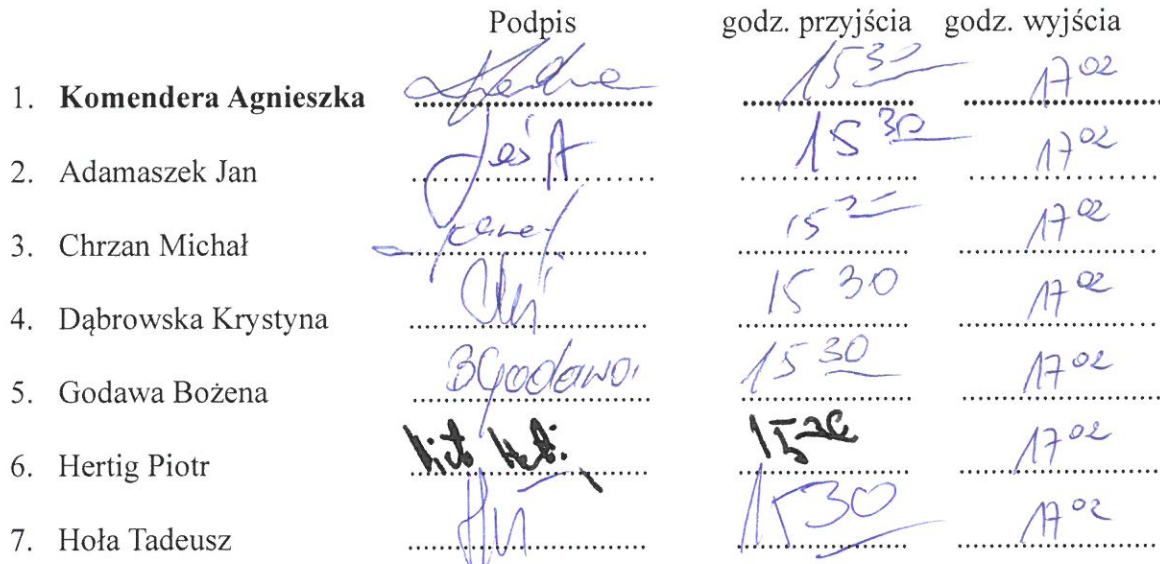 Podpis godz. przyjścia godz. wyjścia
1. Komendera Agnieszka 15 30 17 02
2. Adamaszek Jan 15 30 17 02
3. Chrzan Michał 15 17 02
4. Dąbrowska Krystyna 15 30 17 02
5. Godawa Bożena BGodawa 15 30 17 02
6. Hertig Piotr 15 30 17 02
7. Hoła Tadeusz 15 30 17 02